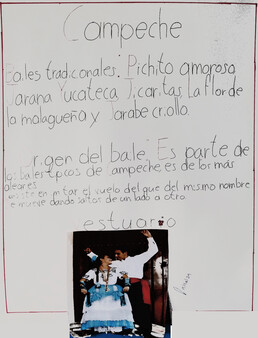 Campeche
Bailes tradicionales: Pichito amoroso
Jarana Yucateca Jicaritas La flor de
la malagueña y Jarabe criollo.
Origen del baile: Es parte de
los bailes tipicos de campeche es de los mas
alegres
en imitar el vuelo del que del mismo nombre
e mueve dando saltos de un lado a otro.
estuario